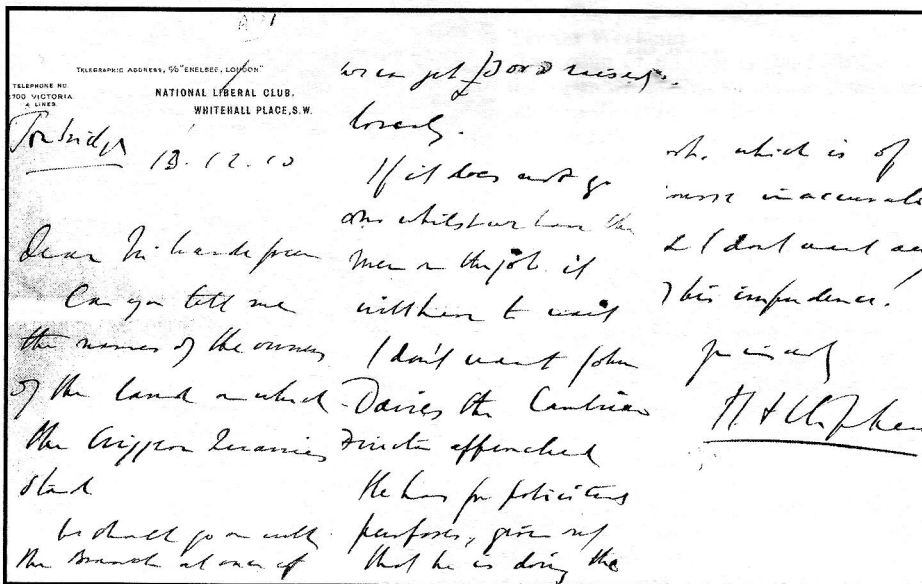 TELEGRAPHIC ADDRESS, C/O "ENELBEE, LONDON"
TELEPHONE NO.
5100 VICTORIA
4 LINES.
NATIONAL LIBERAL CLUB.
WHITEHALL PLACE, S.W.
Tonbridge
13.12.10
Dear Mr
Can you tell me
the names of the owners
of the land on which
the Quarries
stand
We shall go on with
the Branch at once if
we can get raised
locally.
If it does not go
on whilst we have the
men on the job it
will have to wait
I don't want John
Davies the Cambrian
Director approached
He has for political
purposes, given out
that he is doing the
which is of
course inaccurate
& I don't want
his impudence!